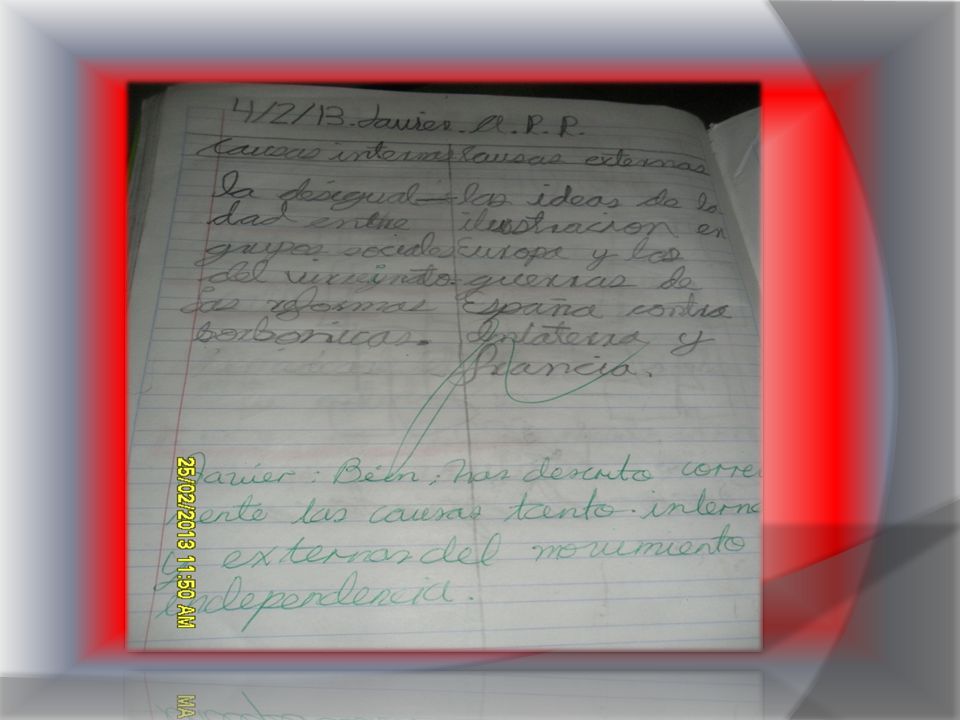 4/2/13. Javier. A. P. P.
Causas internas Causas externas
la desigual- las ideas de la
dad entre ilustracion en
grupos sociales Europa y las
del virreinato. guerras de
las reformas España contra
borbonicas. Inlaterra y
francia.
Javier: Bien, has descrito corre
mente las causas tanto interna
y externas del movimiento
independencia.
25/02/2013 11:50 AM